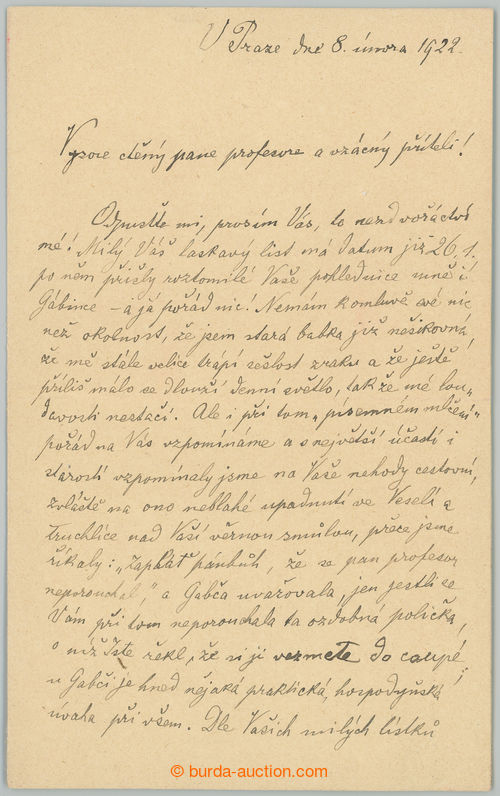 V Praze dne 8. února 1922.
Vysoce ctěný pane profesore a vzácný příteli!
Odpusťte mi, prosím Vás, to nezdvořáctví
mé! Milý Váš laskavý list má datum již 26./1.
po něm přišly roztomilé Vaše pohlednice mně i
Gábince – a já pořád nic! Nemám k omluvě své nic
než okolnost, že jsem stará babka již nešikovná,
že mě stále velice trápí sešlost zraku a že ještě
příliš málo se dlouží denní světlo, tak že mé lou-
davosti nestačí. Ale i při tom „písemném mlčení“
pořád na Vás vzpomínáme a s největší účastí i
starostí vzpomínaly jsme na Vaše nehody cestovní,
zvláště na ono neblahé upadnutí ve Veselí a
truchlíce nad Vaší věrnou smůlou, přece jsme
říkaly: „Zaplať pánbůh, že se pan profesor
neporouchal“, a Gabča uvažovala, jen jestli se
Vám při tom neporouchala ta ozdobná polička,
o níž jste řekl, že si ji vezmete do coupé,
u Gabči je hned nějaká praktická, hospodyňská
úvaha při všem. Dle Vašich milých lístků
© burda-auction.com